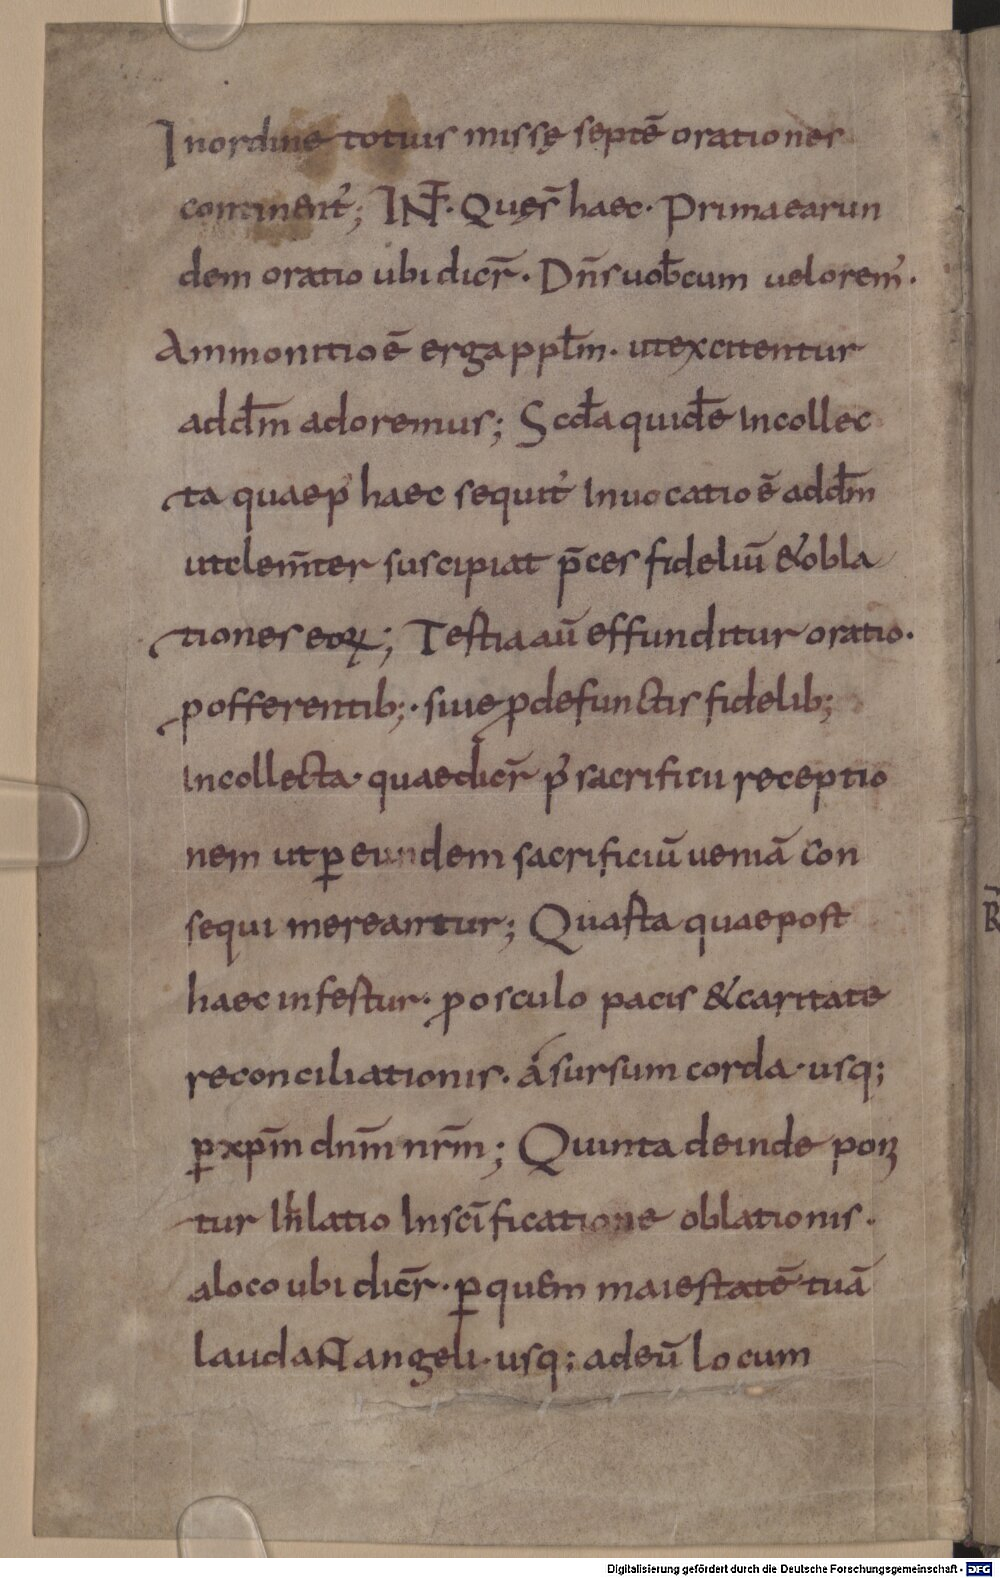 Inordine totius missę septē orationes
continent᷎; INT̄· Quęs̄ haec· Primaearun
dem oratio ubi dicr̄· Dn̄s uob̄cum uel orem᷎·
Ammonitio ē erga ppl̄m· ut excitentur
ad dm̄ adoremus; Scd̄a quidē Incollec
ta quae p᷎ haec sequit᷎ Inuocatio ē ad dm̄
ut clem̄ter suscipiat p̄ces fideliū & obla
tiones eoꝝ; Testia aū effunditur oratio·
ꝓ offerentib;· siue ꝓ defunctis fidelib;
Incollecta· quae dicr̄ p᷎ sacrificii receptio
nem ut ꝑ eundem sacrificiū ueniā con
sequi mereantur; Quasta quae post
haec infestur· ꝓ osculo pacis & caritate
reconciliationis· á sursum corda· usq;
ꝑ xp̄m dnm̄ nrm̄; Quinta deinde pon
tur Inlatio Insc̄ificatione oblationis·
a loco ubi dicr̄· ꝑ quem maiestatē tuā
laudaNT angeli· usq; ad eū locum
Digitalisierung gefördert durch die Deutsche Forschungsgemeinschaft - DFG